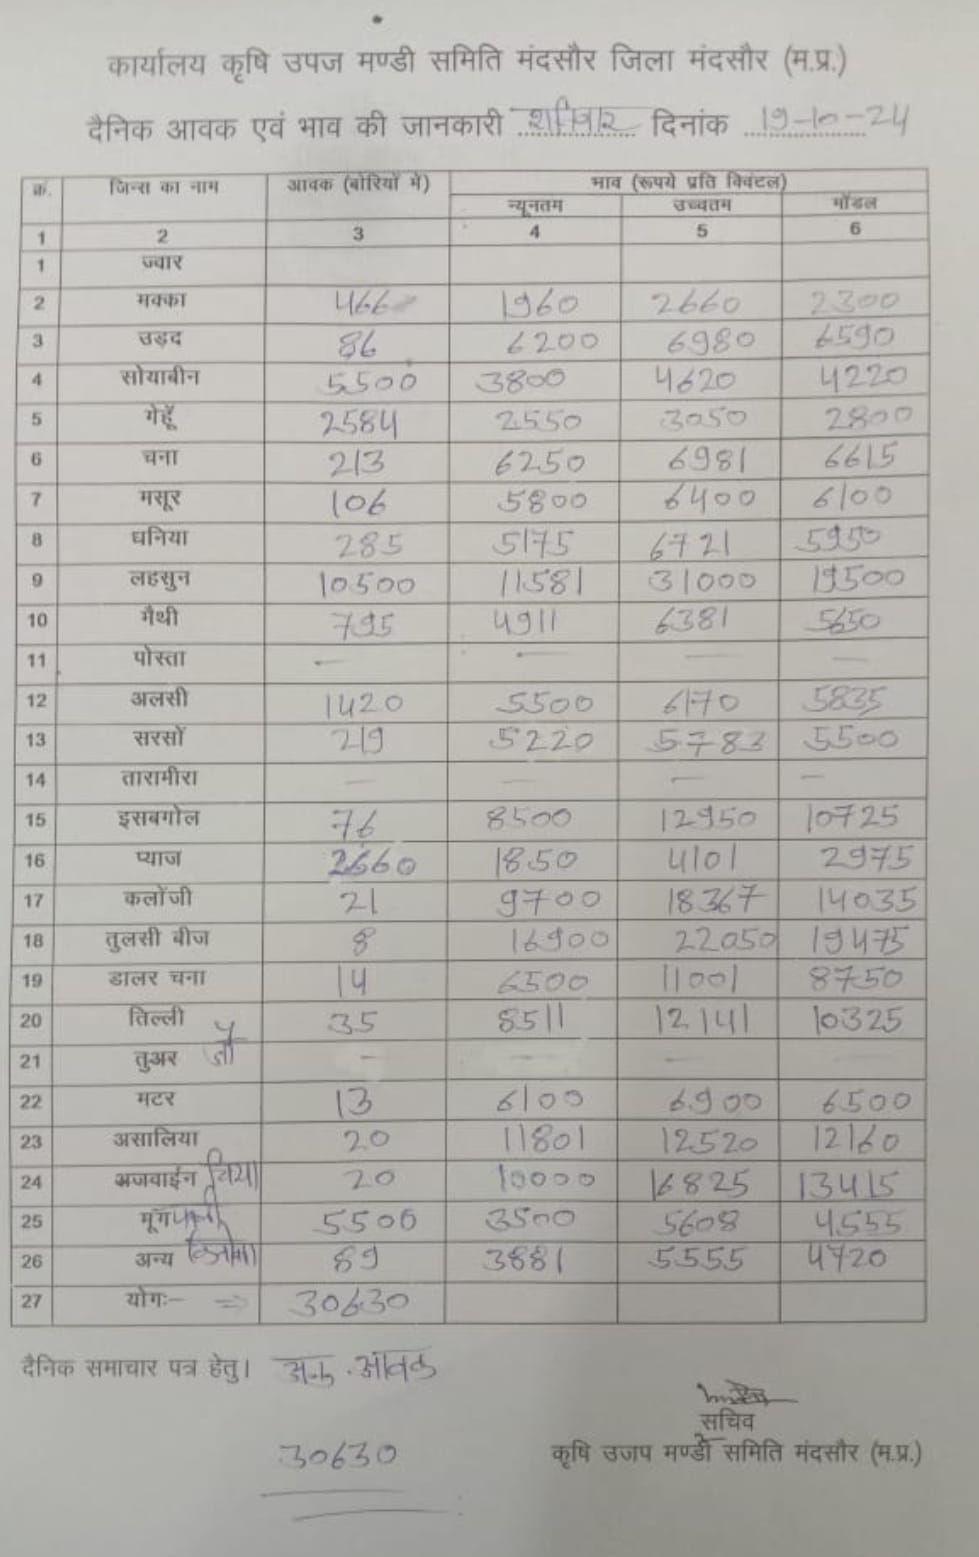 कार्यालय कृषि उपज मण्डी समिति मंदसौर जिला मंदसौर (म.प्र.)
दैनिक आवक एवं भाव की जानकारी शनिवार दिनांक 19-10-24
क्रं. जिन्स का नाम आवक (बोरियों में) भाव (रूपये प्रति क्विंटल)
न्यूनतम उच्चतम मॉडल
1 2 3 4 5 6
1 ज्वार
2 मक्का 466 1960 2660 2300
3 उड़द 86 6200 6980 6590
4 सोयाबीन 5500 3800 4620 4220
5 गेहूँ 2584 2550 3050 2800
6 चना 213 6250 6981 6615
7 मसूर 106 5800 6400 6100
8 धनिया 285 5175 6721 5950
9 लहसुन 10500 11581 31000 19500
10 मैथी 795 4911 6381 5650
11 पोस्ता — — — —
12 अलसी 1420 5500 6170 5835
13 सरसों 219 5220 5783 5500
14 तारामीरा — — — —
15 इसबगोल 76 8500 12950 10725
16 प्याज 2660 1850 4101 2975
17 कलोंजी 21 9700 18367 14035
18 तुलसी बीज 8 16900 22050 19475
19 डालर चना 14 6500 11001 8750
20 तिल्ली 35 8511 12141 10325
21 तुअर जौ — — —
22 मटर 13 6100 6900 6500
23 असालिया 20 11801 12520 12160
24 अजवाईन चिया 20 10000 16825 13415
25 मूंगफली 5500 3500 5608 4555
26 अन्य 89 3881 5555 4720
27 योगः- => 30630
दैनिक समाचार पत्र हेतु। आवक
30630
सचिव
कृषि उजप मण्डी समिति मंदसौर (म.प्र.)